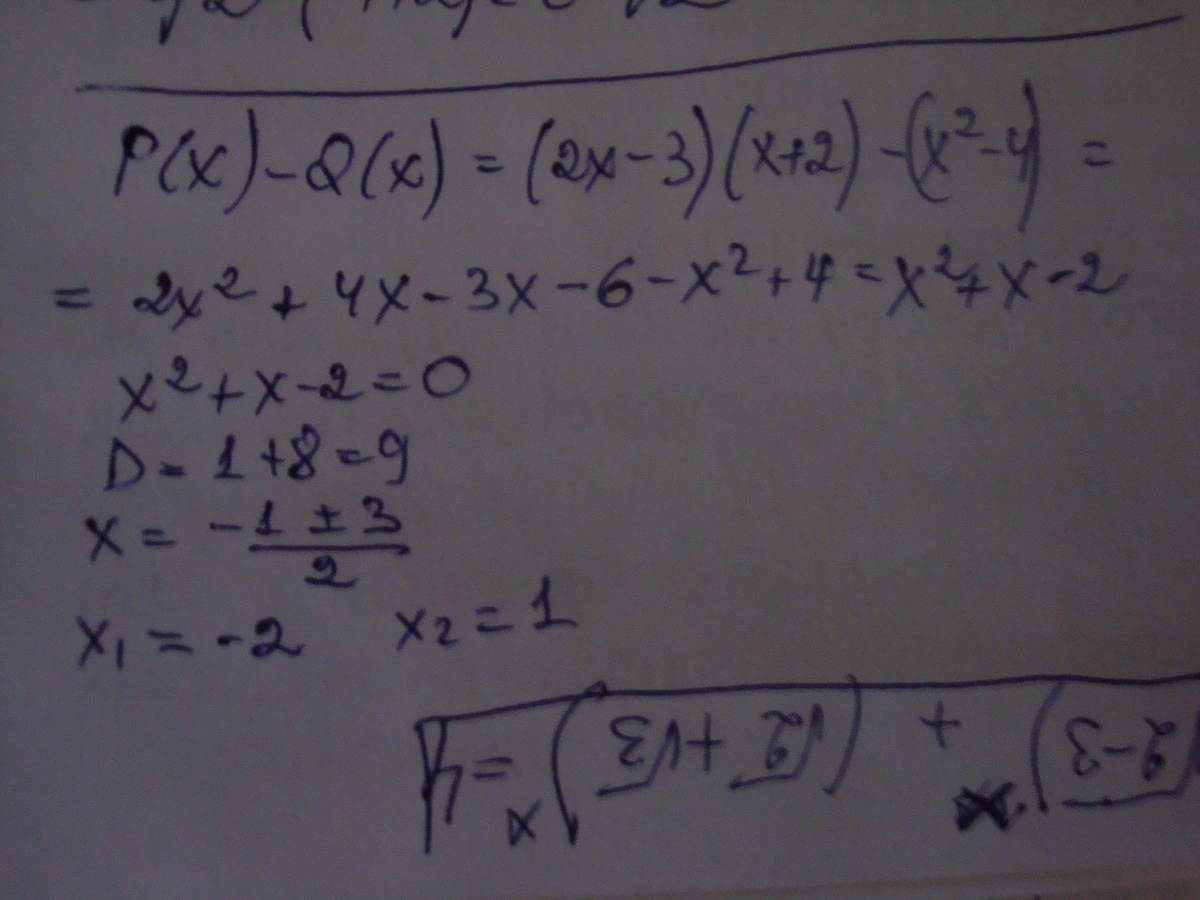 P(x) - Q(x) = (2x - 3)(x + 2) - (x² - 4) =
= 2x² + 4x - 3x - 6 - x² + 4 = x² + x - 2
x² + x - 2 = 0
D = 1 + 8 = 9
x = \frac{-1 ± 3}{2}
x₁ = -2 x₂ = 1